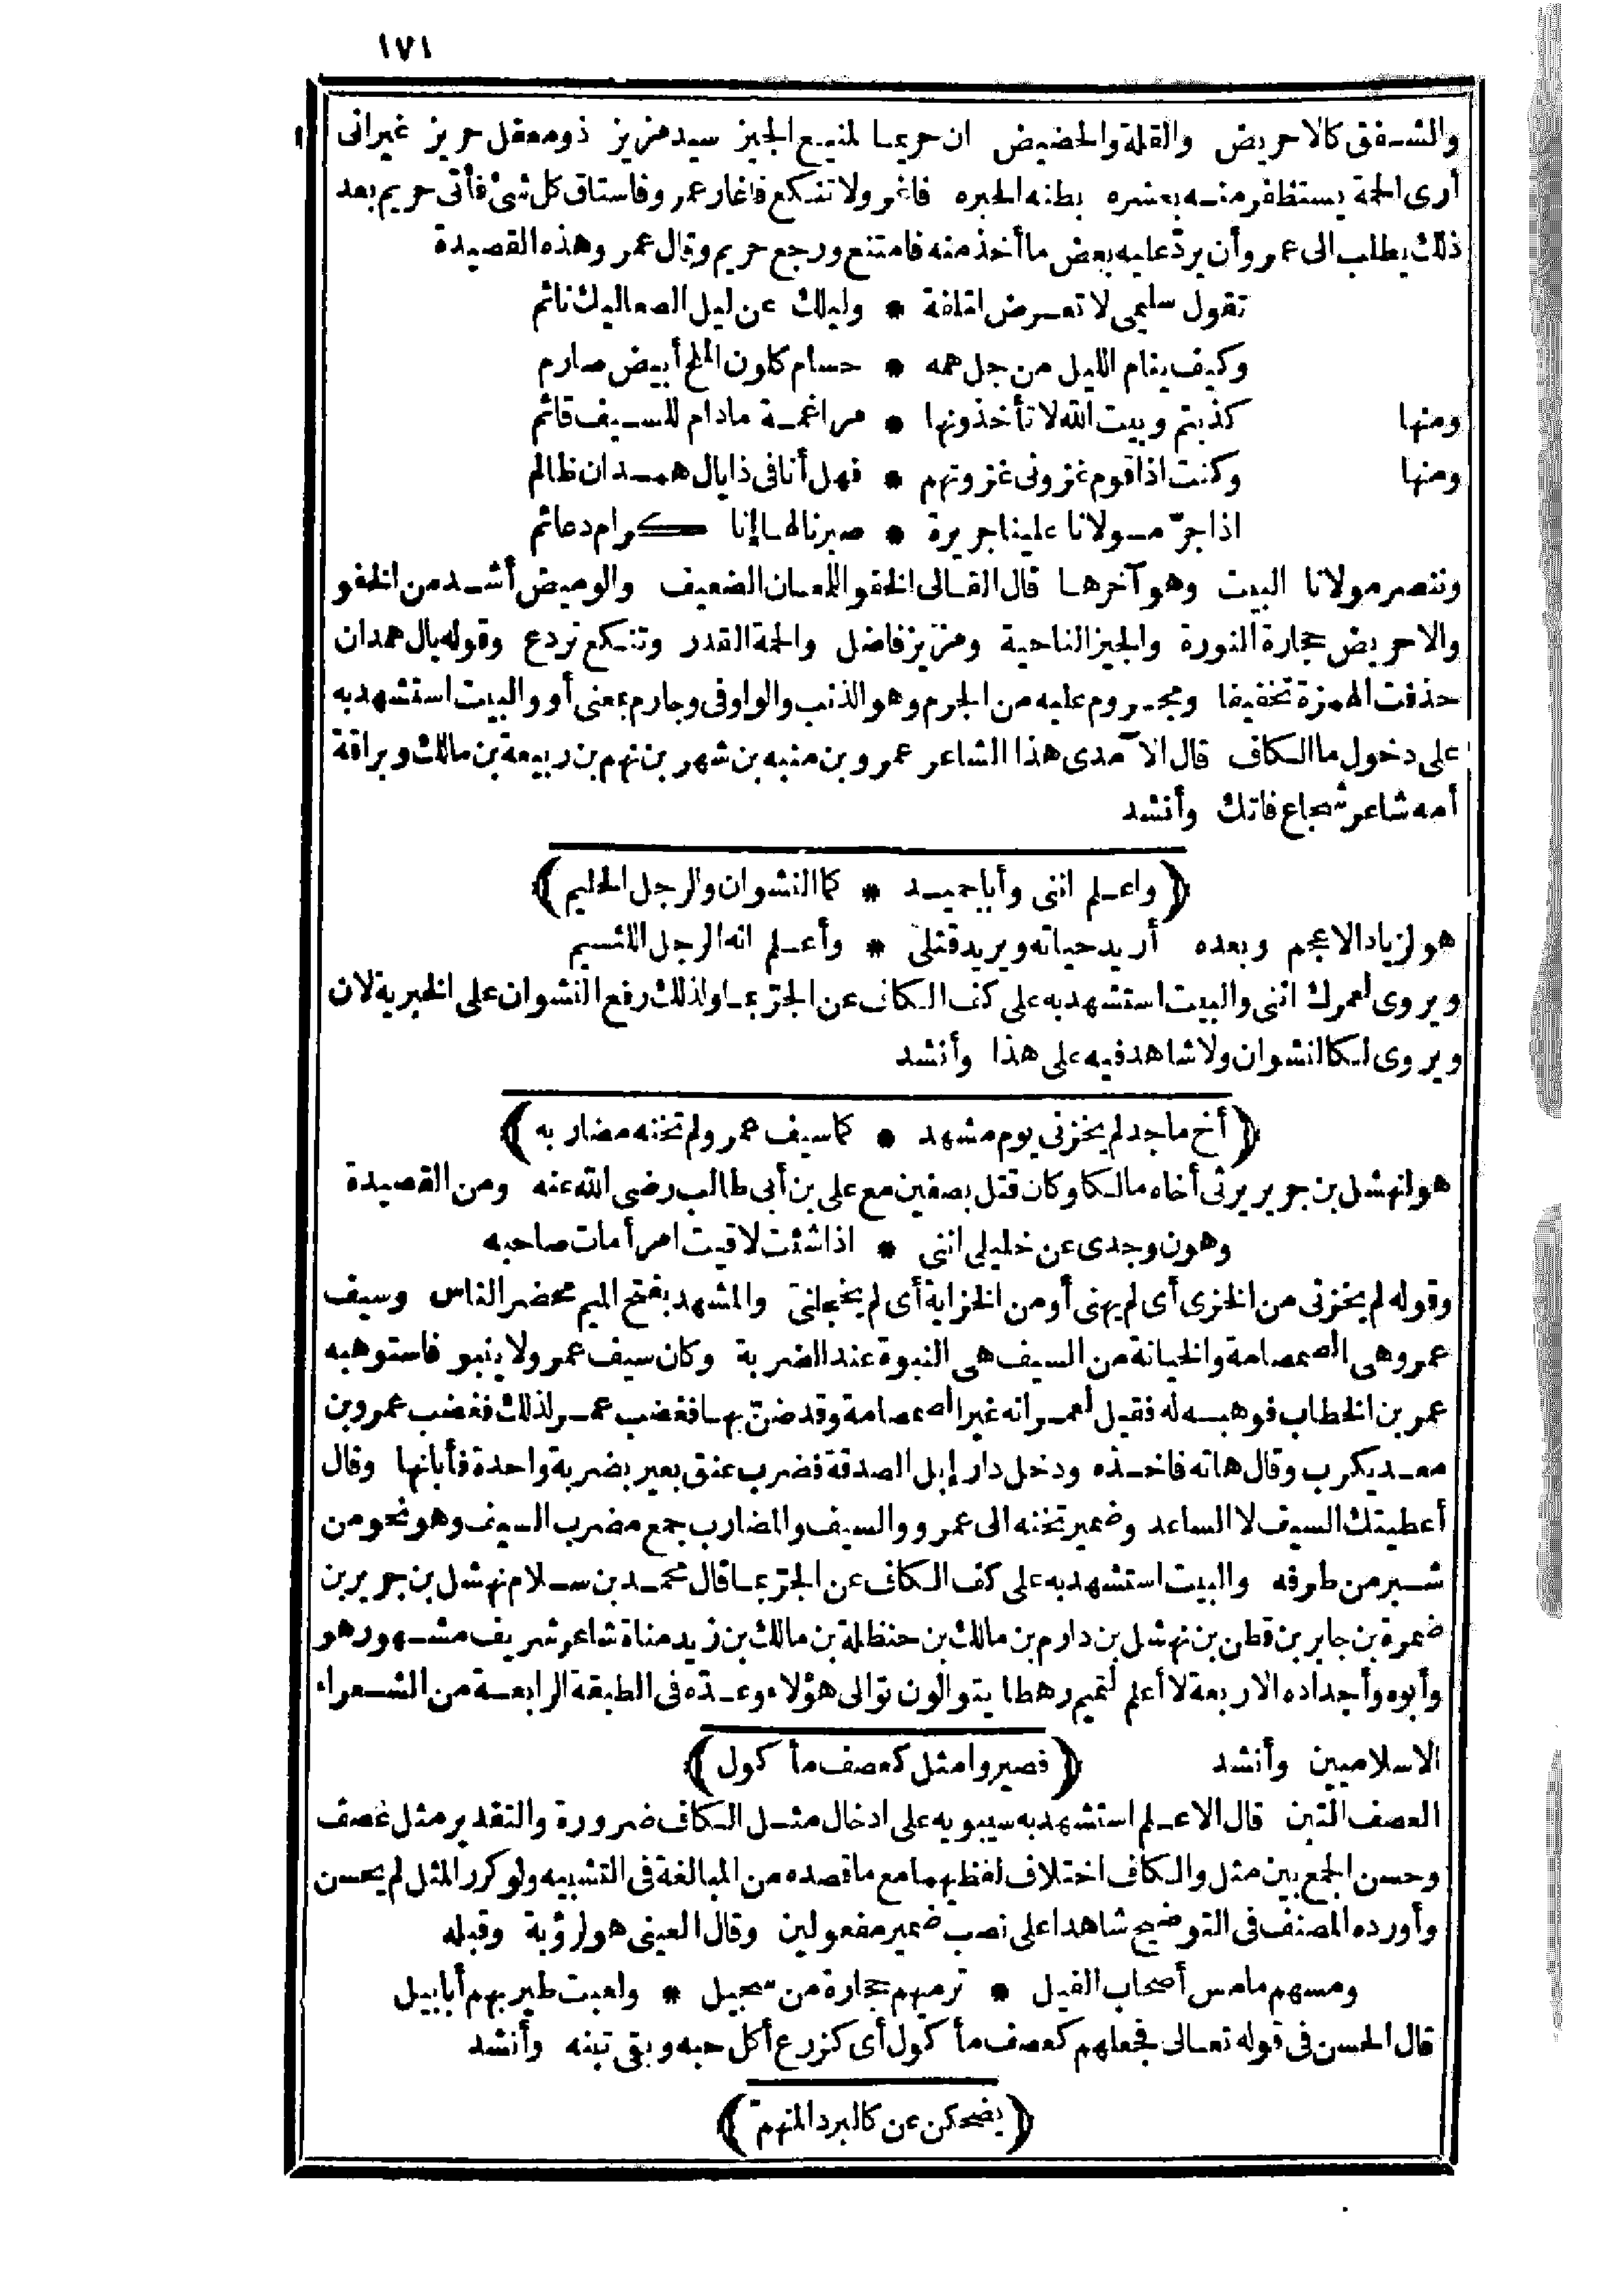 ١٧١
والشفق كالاحريض والقلة والحضيض ان حريما لمنيع الجيز سيد مزيز ذو معقل حريز غير انى
أرى الحمة يستظفر منه بعثره بطنه الجبره فاغر ولا تنكع فاغار عمرو فاستاق كل شئ فأتى حريم بعد
ذلك يطلب الى عمرو أن يردّ عليه بعض ما أخذ منه فامتنع ورجع حريم وقال عمرو هذه القصيدة
تقول سليمى لا تعرض لتلفة * وليلك عن ليل الصعاليك نائم
وكيف ينام الليل من جل همه * حسام كلون الملح أبيض صارم
ومنها كذبتم وبيت الله لا تأخذونها * مراغمة مادام للسيف قائم
ومنها وكنت اذا قوم غزونى غزوتهم * فهل أنا فى ذا يال همدان ظالم
اذا جرّ مولانا علينا جريرة * صبرنا لها إنا كرام دعائم
وننصر مولانا البيت وهو آخرها قال القالى الخفو اللمعان الضعيف والوميض أشد من الخفو
والاحريض حجارة النورة والجيز الناحية ومزيز فاضل والحمة القدر وتنكع تردع وقوله يال همدان
حذفت الهمزة تخفيفا ومجروم عليه من الجرم وهو الذنب والواو فى وجارم بمعنى أو والبيت استشهد به
على دخول ما الكاف قال الآمدى هذا الشاعر عمرو بن منبه بن شهر بن نهم بن ربيعة بن مالك وبراقة
أمه شاعر شجاع فاتك وأنشد
(واعلم اننى وأبا حميد * كما النشوان والرجل الحليم)
هو لزياد الاعجم وبعده أريد حياته ويريد قتلى * وأعلم انه الرجل اللئيم
ويروى لعمرك اننى والبيت استشهد به على كف الكاف عن الجرّ بما ولذلك رفع النشوان على الخبرية لان
ويروى لكالنشوان ولا شاهد فيه على هذا وأنشد
(أخ ماجد لم يخزنى يوم مشهد * كما سيف عمرو لم تخنه مضاربه)
هو لنهشل بن جرير يرثى أخاه مالكا وكان قتل بصفين مع على بن أبى طالب رضى الله عنه ومن القصيدة
وهون وجدى عن خليلى اننى * اذا شئت لاقيت امرأ مات صاحبه
وقوله لم يخزنى من الخزى أى لم يهنى أو من الخزاية أى لم يخجلنى والمشهد بفتح الميم محضر الناس وسيف
عمرو هى الصمصامة والخيانة من السيف هى النبوة عند الضربة وكان سيف عمرو لا ينبو فاستوهبه
عمر بن الخطاب فوهبه له فقيل لعمر انه غير الصمصامة وقد ضنّ بها فغضب عمر لذلك فغضب عمرو بن
معديكرب وقال هاته فاخذه ودخل دار إبل الصدقة فضرب عنق بعير بضربة واحدة فأبانها وقال
أعطيتك السيف لا الساعد وضمير تخنه الى عمرو والسيف والمضارب جمع مضرب السيف وهو نحو من
شبر من طرفه والبيت استشهد به على كف الكاف عن الجرّ بما قال محمد بن سلام نهشل بن جرير بن
ضمرة بن جابر بن قطن بن نهشل بن دارم بن مالك بن حنظلة بن مالك بن زيد مناة شاعر شريف مشهور هو
وأبوه وأجداده الاربعة لا أعلم لتميم رهطا يتوالون توالى هؤلاء وعده فى الطبقة الرابعة من الشعراء
الاسلاميين وأنشد (فصيروا مثل كعصف مأكول)
العصف التبن قال الاعلم استشهد به سيبويه على ادخال مثل الكاف ضرورة والتقدير مثل عصف
وحسن الجمع بين مثل والكاف اختلاف لفظيهما مع ما قصده من المبالغة فى التشبيه ولو كرر المثل لم يحسن
وأورده المصنف فى التوضيح شاهدا على نصب ضمير مفعولين وقال العينى هو لرؤبة وقبله
ومسهم ما مس أصحاب الفيل * ترميهم حجارة من سجيل * ولعبت طير بهم أبابيل
قال الحسن فى قوله تعالى فجعلهم كعصف مأكول أى كزرع أكل حبه وبقى تبنه وأنشد
(يضحكن عن كالبرد المنهمّ)